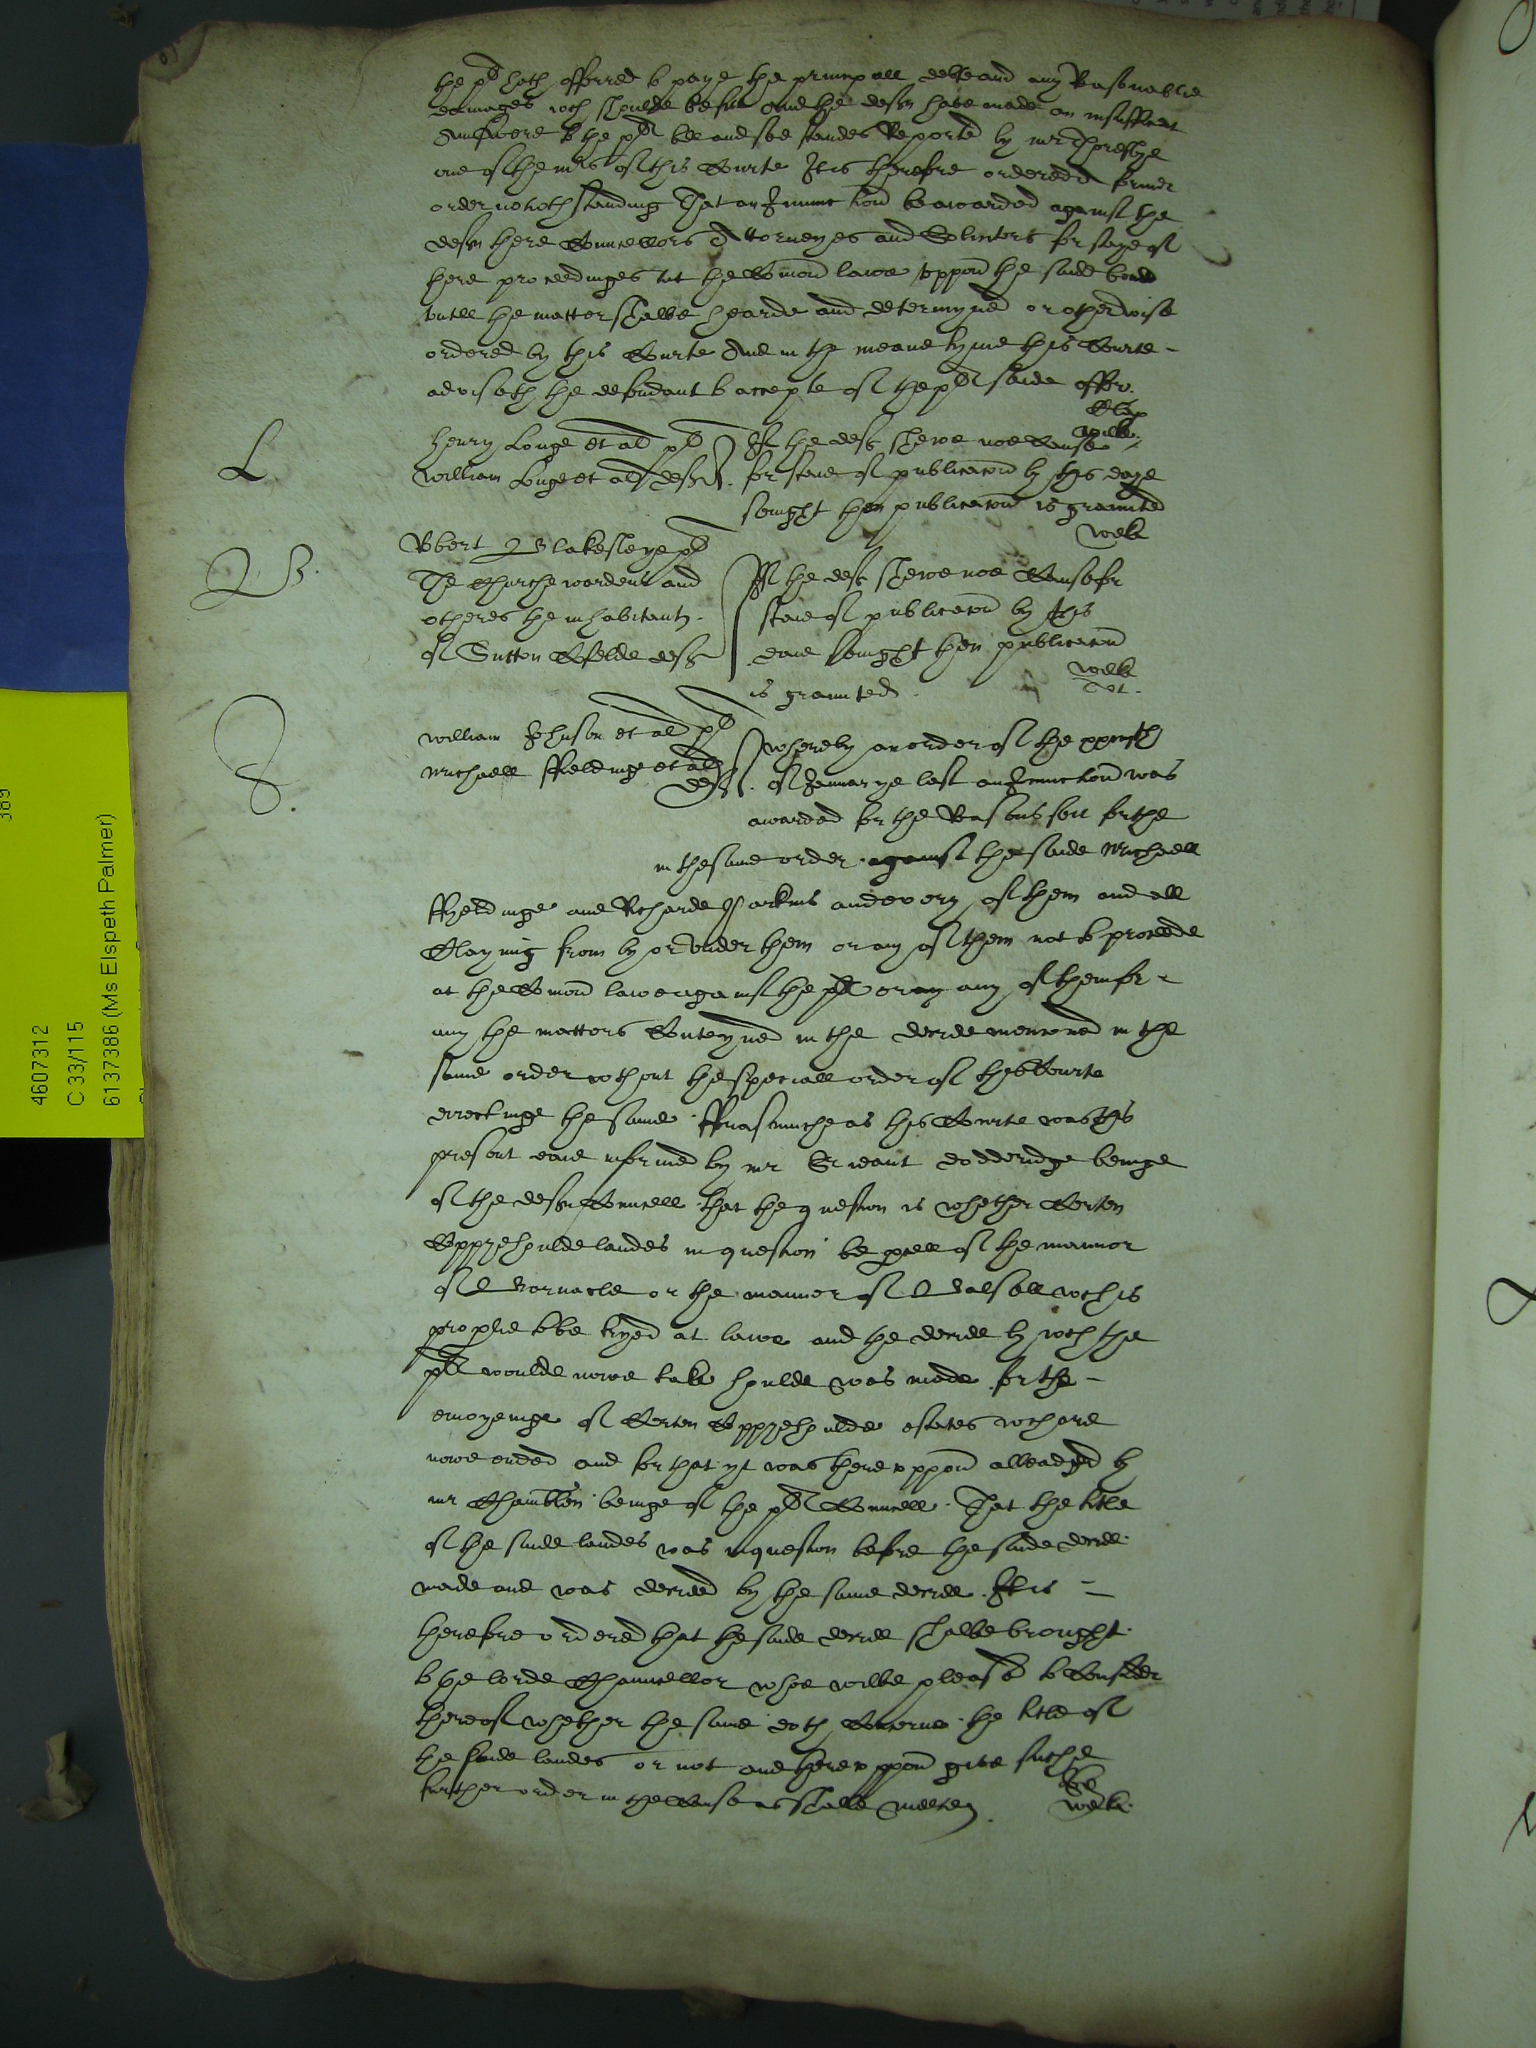 the pl hath offered to paye the principall debte and any Reasonable
damages wch shoulde be sett and the deftes have made an insufficient
Aunswere to the pl bill and soe standes Reported by mr Thoresbye
one of the mrs of this Courte It is therefore ordered a former
order notwthstanding That an Iniunction be awarded against the
deftes there Councellors Attorneyes and Solicitors for staye of
there proceedinges att the Comon lawe uppon the saide bond
untill the matter shalbe hearde and determyned or otherwise
ordered by this Courte And in the meane tyme this Courte
adviseth the defendant to accepte of the pl saide offer
L. Henry Longe et al pl
William Longe et al deftes
If the deft shewe noe Cause
for staie of publicacon by this daye
sevnight then publicacon is graunted
B. Robert Blakesleye pl
The Churchewardens and
otheres the inhabitants
of Sutton Cofelde deftes
If the deft shewe noe Cause for
staie of publicacon by this
daie sevnight then publicacon
is graunted
William Johnson et al pl
Michaell ffieldinge et al
deftes
Whereby an order of the
of Januarye last an Iniunction was
awarded for the Reasons sett forthe
in the same order against the saide Michaell
ffyeldinge and Richarde Parkins and every of them and all
Clayming from by or under them or any of them not to proceede
at the Comon lawe against the pl or any any of them for
any the matters Conteyned in the decree mencioned in the
same order wthout the speciall order of this Courte
directinge the same fforasmuche as this Courte was this
present daie informed by mr Seriant Dodderidge beinge
of the deftes Councell that the question is whether Certen
Coppyehoulde landes in question be pcell of the mannor
of Barnacle or the mannor of Walsall wch is
proper to be tryed at lawe and the decree by wch the
pl woulde nowe take houlde was made for the
enioyeinge of Certen Coppyehoulde estates wch are
nowe ended and for that yt was thereuppon alleadged by
mr Chamblen beinge of the pl Councell That the title
of the saide landes was in question before the saide decree
made and was decreed by the same decree It is
therefore ordered that the saide decree shalbe brought
to the lorde Chauncellor whoe wilbe pleased to Consider
thereof whether the same doth Concerne the title of
the saide landes or not and thereuppon give suche
further order in the Cause as shalbe meete
4607312
C 33/115
6137386 (Ms Elspeth Palmer)
389